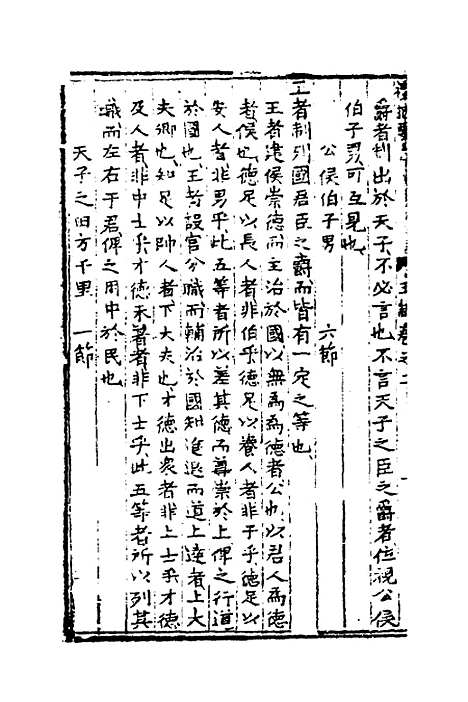 爵者制出於天子不必言也不言天子之臣之爵者位視公侯
伯子男可互見也
公侯伯子男　六節
王者制列國君臣之爵而皆有一定之等也
王者建侯崇德而主治於國以無為為德者公也以君人為德
者侯也德足以長人者非伯乎德足以養人者非子乎德足以
安人者非男乎此五等者所以差其德而尊崇於上俾之行道
於國也王者設官分職而輔治於國知進退而道上達者上大
夫卿也知足以帥人者下大夫也才德出衆者非上士乎才德
及人者非中士乎才德承著者非下士乎此五等者所以列其
職而左右于君俾之用中於民也
天子之田方千里　一節